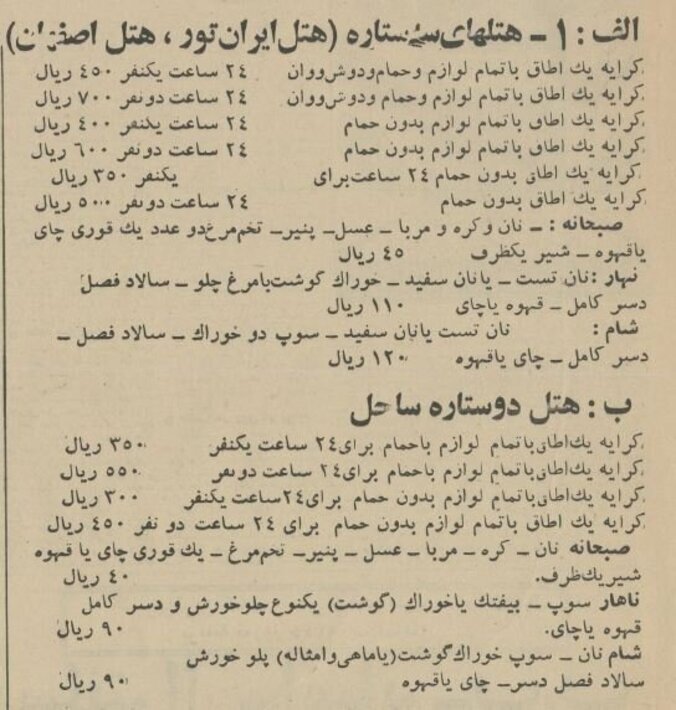 الف : ۱ – هتلهای سه ستاره (هتل ایران تور ، هتل اصفهان)
کرایه یك اطاق باتمام لوازم وحمام ودوش ووان ۲٤ ساعت یکنفر ٤۵۰ ریال
کرایه یك اطاق باتمام لوازم وحمام ودوش ووان ۲٤ ساعت دونفر ۷۰۰ ریال
کرایه یك اطاق باتمام لوازم بدون حمام ۲٤ ساعت یکنفر ٤۰۰ ریال
کرایه یك اطاق باتمام لوازم بدون حمام ۲٤ ساعت دونفر ٦۰۰ ریال
کرایه یك اطاق بدون حمام ۲٤ ساعت برای یکنفر ۳۵۰ ریال
کرایه یك اطاق بدون حمام ۲٤ ساعت دونفر ۵۰۰ ریال
صبحانه : – نان وکره و مربا – عسل – پنیر – تخم مرغ دو عدد یك قوری چای
یاقهوه – شیر یکظرف ٤۵ ریال
نهار : نان تست – یانان سفید – خوراك گوشت یامرغ چلو – سالاد فصل
دسر کامل – قهوه یاچای ۱۱۰ ریال
شام : نان تست یانان سفید – سوپ دو خوراك – سالاد فصل –
دسر کامل – چای یاقهوه ۱۲۰ ریال
ب : هتل دوستاره ساحل
کرایه یك اطاق باتمام لوازم باحمام برای ۲٤ ساعت یکنفر ۳۵۰ ریال
کرایه یك اطاق باتمام لوازم باحمام برای ۲٤ ساعت دونفر ۵۵۰ ریال
کرایه یك اطاق باتمام لوازم بدون حمام برای ۲٤ ساعت یکنفر ۳۰۰ ریال
کرایه یك اطاق باتمام لوازم بدون حمام برای ۲٤ ساعت دو نفر ٤۵۰ ریال
صبحانه نان – کره – مربا – عسل – پنیر – تخم مرغ – یك قوری چای یا قهوه
شیر یك ظرف. ٤۰ ریال
ناهار سوپ – بیفتك یاخوراك (گوشت) یکنوع چلوخورش و دسر کامل
قهوه یاچای. ۹۰ ریال
شام نان – سوپ خوراك گوشت (یاماهی وامثاله) پلو خورش
سالاد فصل دسر – چای یاقهوه ۹۰ ریال